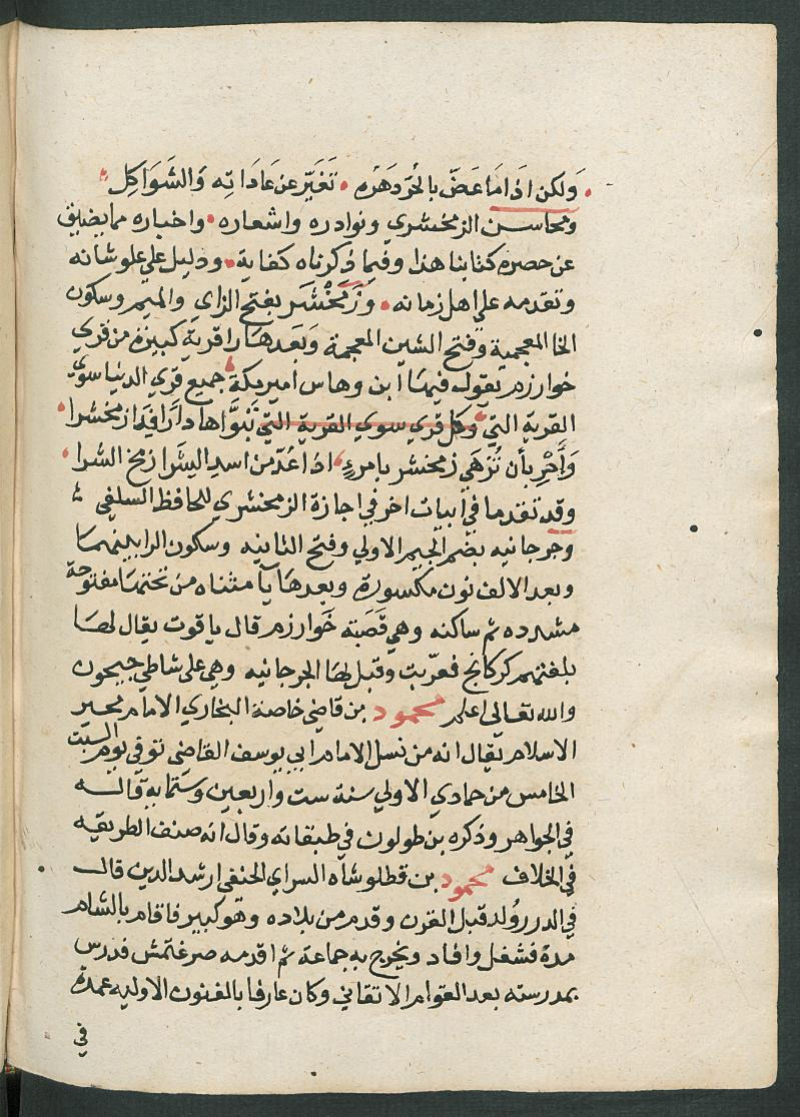 ولكن اذا ما عَضَّ بالحُرّ دَهْرُه • تَغَيَّرَ عن عَادَاتِه وَالشَوَاكِل
ومحاسن الزمخشري ونوادره واشعاره • واخباره مما يضيق
عن حصره كتابنا هذا وفيما ذكرناه كفاية • ودليل علي علو شانه
وتقدمه علي اهل زمانه • وزَمَخْشَر بفتح الزاي والميم وسكون
الخا المعجمية وفتح الشين المعجمة وبَعدهَا را قرية كبيرة من قري
خوارزم يقول فيها ابن وهاس امير مكة جميع قري الدنيا سوي
القرية التي وكل قري سوي القرية التي تَبَوَّاها دارًا فِدَا زمخشرا
وَأَحْرِ بأن تُزهَي زمخشر بامرءٍ اذا عُدَّ من اسد الشَّرا زمخ الشرا
وقد تقدما في أبيات اخر في اجازة الزمخشري للحافظ السلفي
وجرجانيه بضم الجيم الاولي وفتح الثانيه وسكون الرا بينهما
وبعد الالف نون مكسورة وبعدهَا يآ مثناه من تحتها مفتوحة
مشدده ثم ساكنه وهي قَصَبَة خَوارزم قال ياقوت يقال لها
بلغتهم كركانج فعرّبت وقيل لها الجرجانيه وهي علي شاطي جيحون
والله تعالي اعلم محمود بن قاضي خاصة البخاري الامام مجير
الاسلام يقال انه من نسل الامام ابي يوسف القاضي توفي يوم السبت
الخامس من جمادي الاولي سنة ست واربعين وستمايه قاله
في الجواهر وذكره بن طولون في طبقاته وقال انه صنف الطريقه
في الخلاف محمود بن قطلوشاه السراي الحنفي ارشد الدين قال
في الدرر وُلد قبل القرن وقدم من بلاده وهو كبير فاقام بالشام
مدة فشغل وافاد وتخرج به جماعة ثم اقدمه صرغتمش فدرس
بمدرسته بعد القوام الاتقاني وكان عارفا بالفنون الاوليه عمدة
في